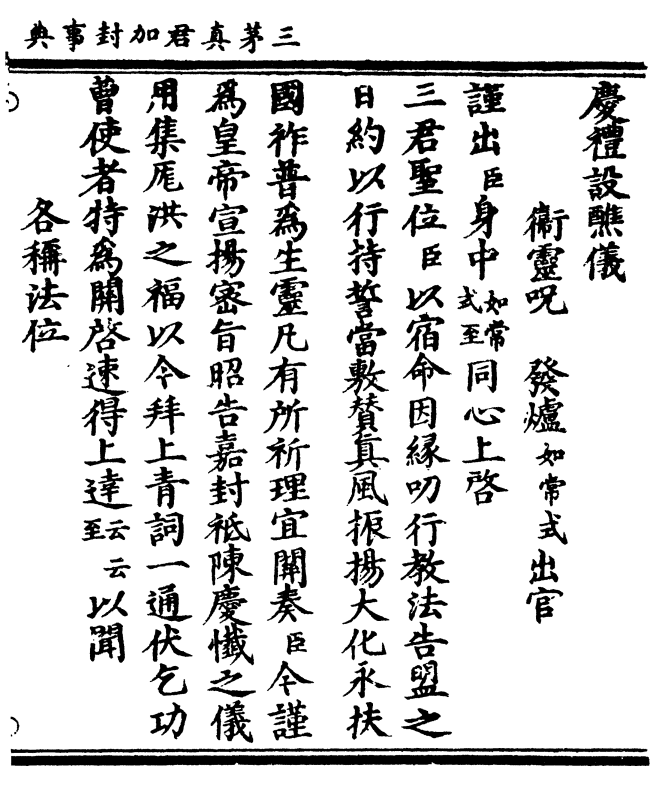 三茅真君加封事典
慶禮設醮儀
衞靈呪　發爐如常式出官
謹出臣身中如常式至同心上啓
三君聖位臣以宿命因緣叨行教法告盟之
日約以行持誓當敷贊真風振揚大化永扶
國祚普爲生靈凡有所祈理宜闡奏臣今謹
爲皇帝宣揚密旨昭告嘉封祗陳慶懺之儀
用集厖洪之福以今拜上青詞一通伏乞功
曹使者特爲開啓速得上達云云至以聞
各稱法位